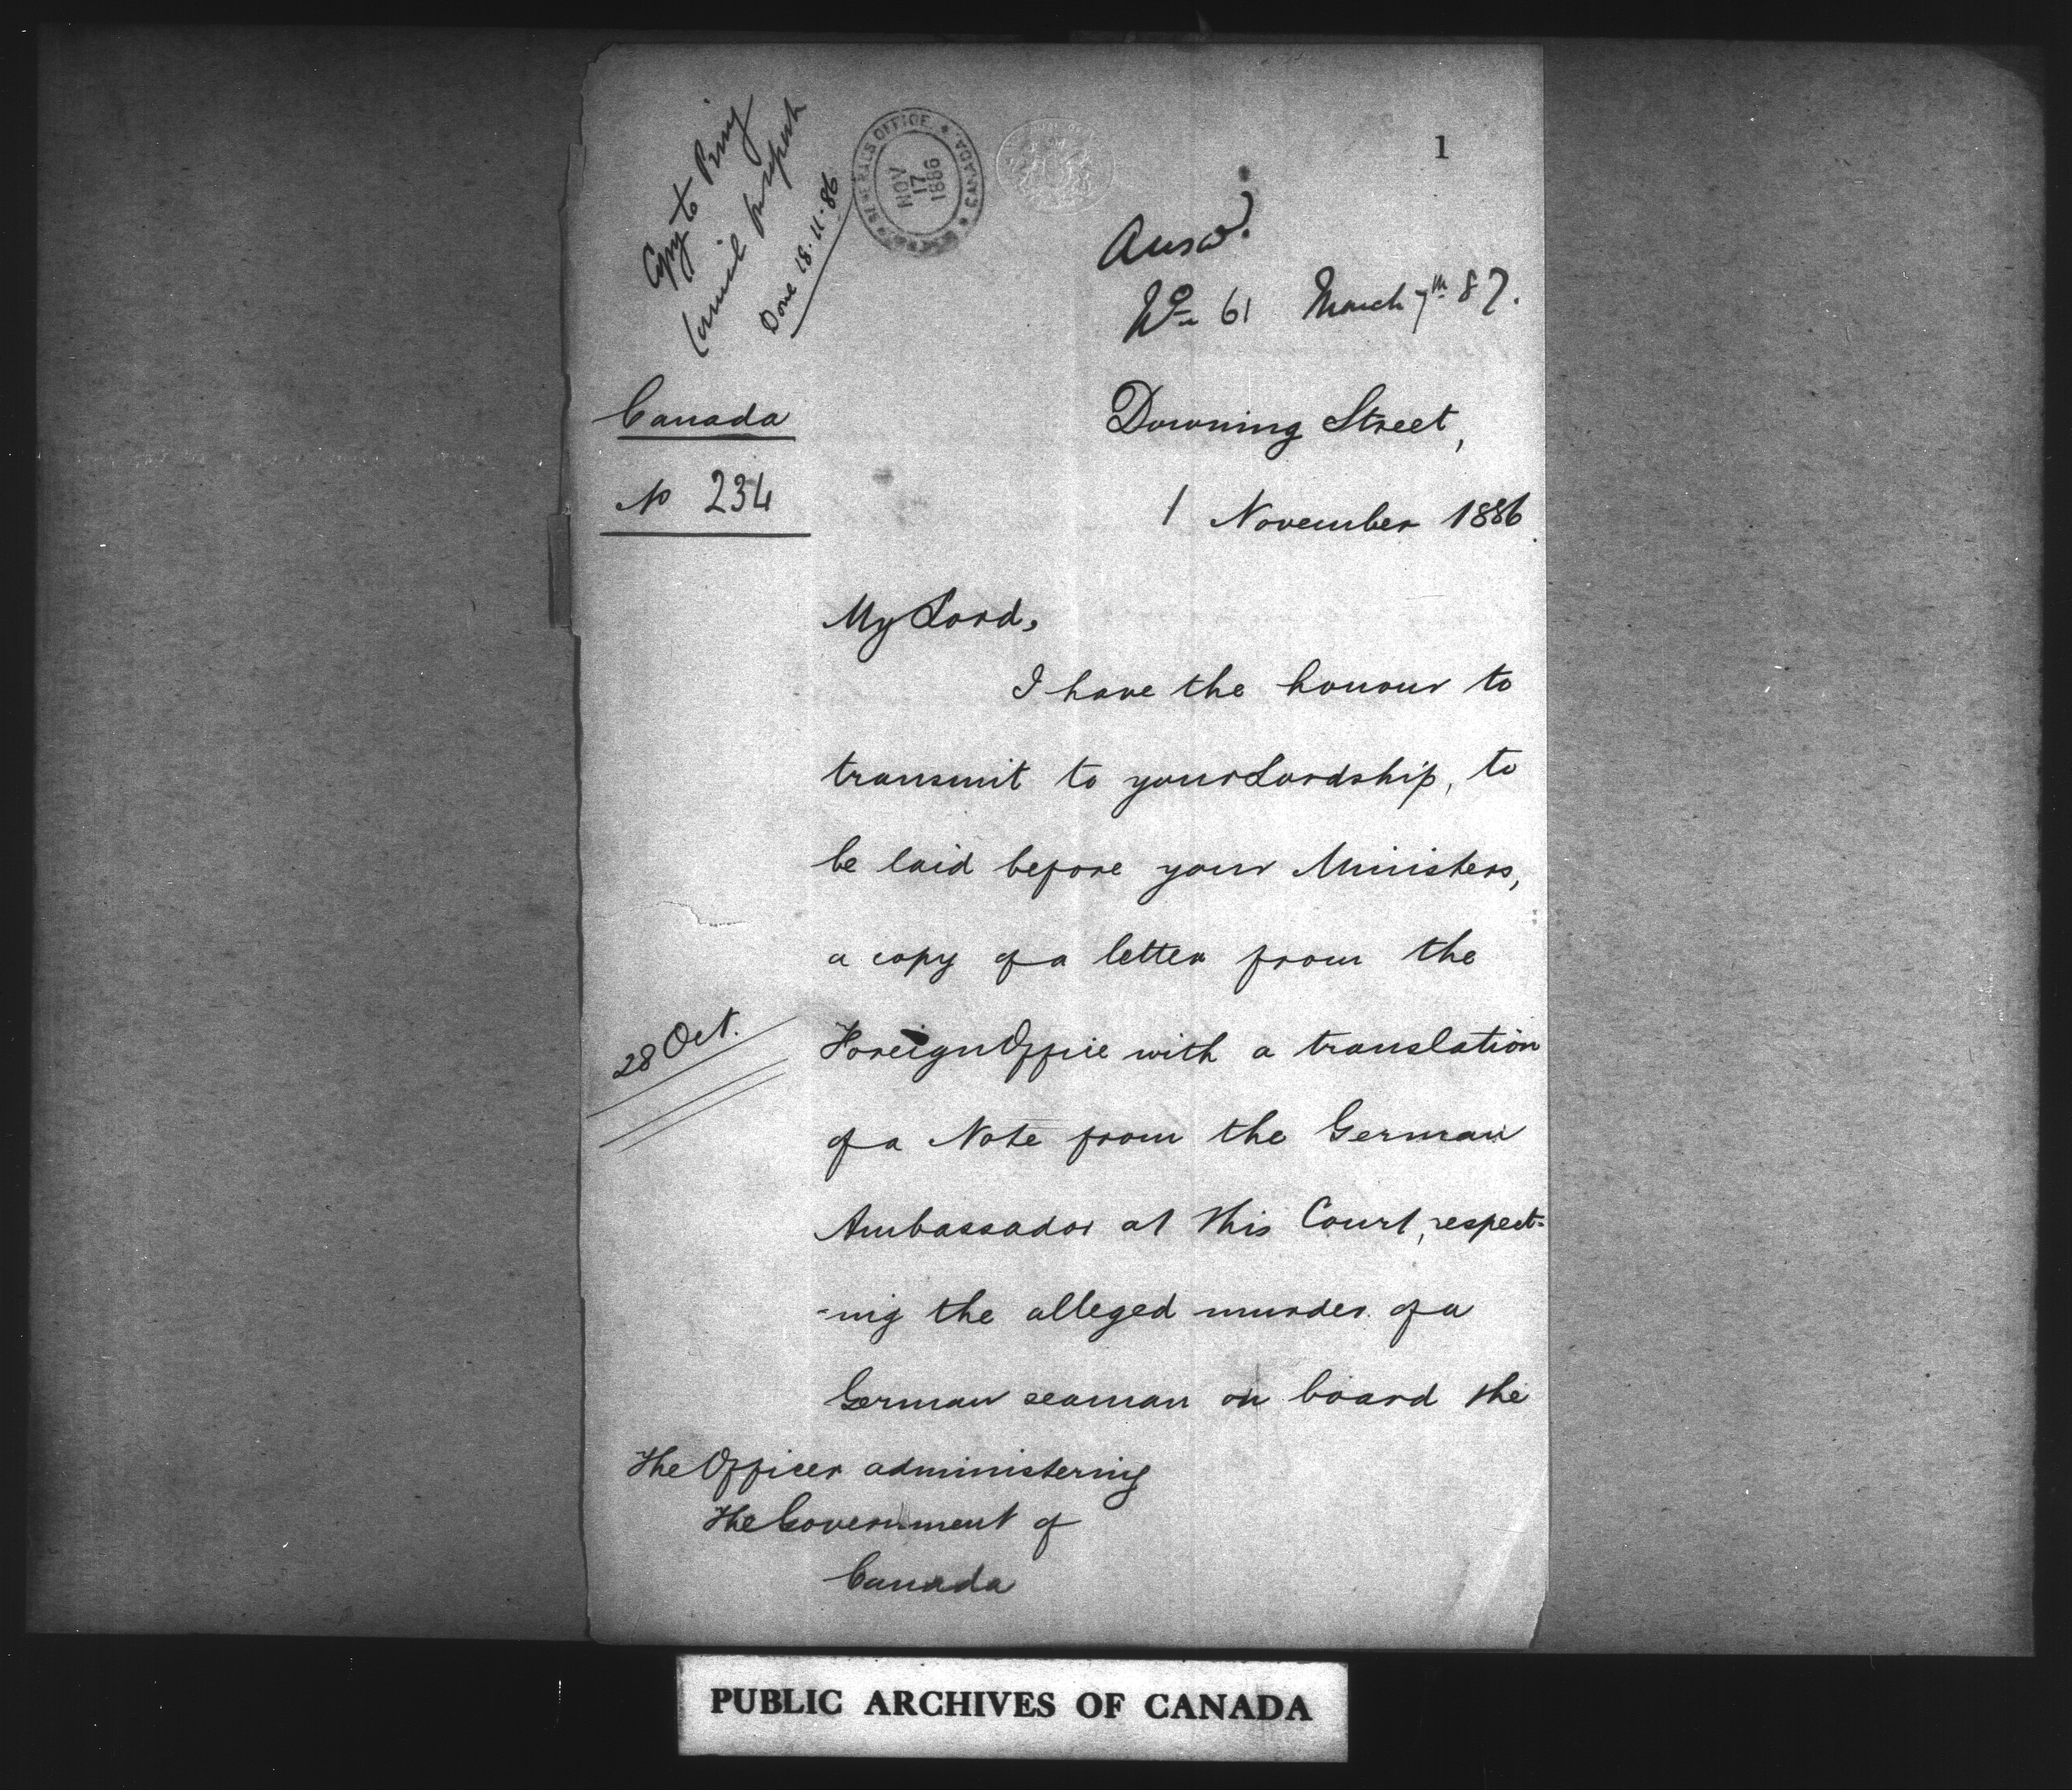 1
Copy to Privy
Council
Done 18.11.86
GENERAL'S OFFICE
CANADA
NOV
17
1886
Answd.
No 61 March 7th 87.
Canada
No 234
Downing Street,
1 November 1886.
My Lord,
I have the honour to
transmit to your Lordship, to
be laid before your Ministers,
a copy of a letter from the
28 Oct.
Foreign Office with a translation
of a Note from the German
Ambassador at this Court, respect-
-ing the alleged murder of a
German seaman on board the
The Officer administering
The Government of
Canada
PUBLIC ARCHIVES OF CANADA